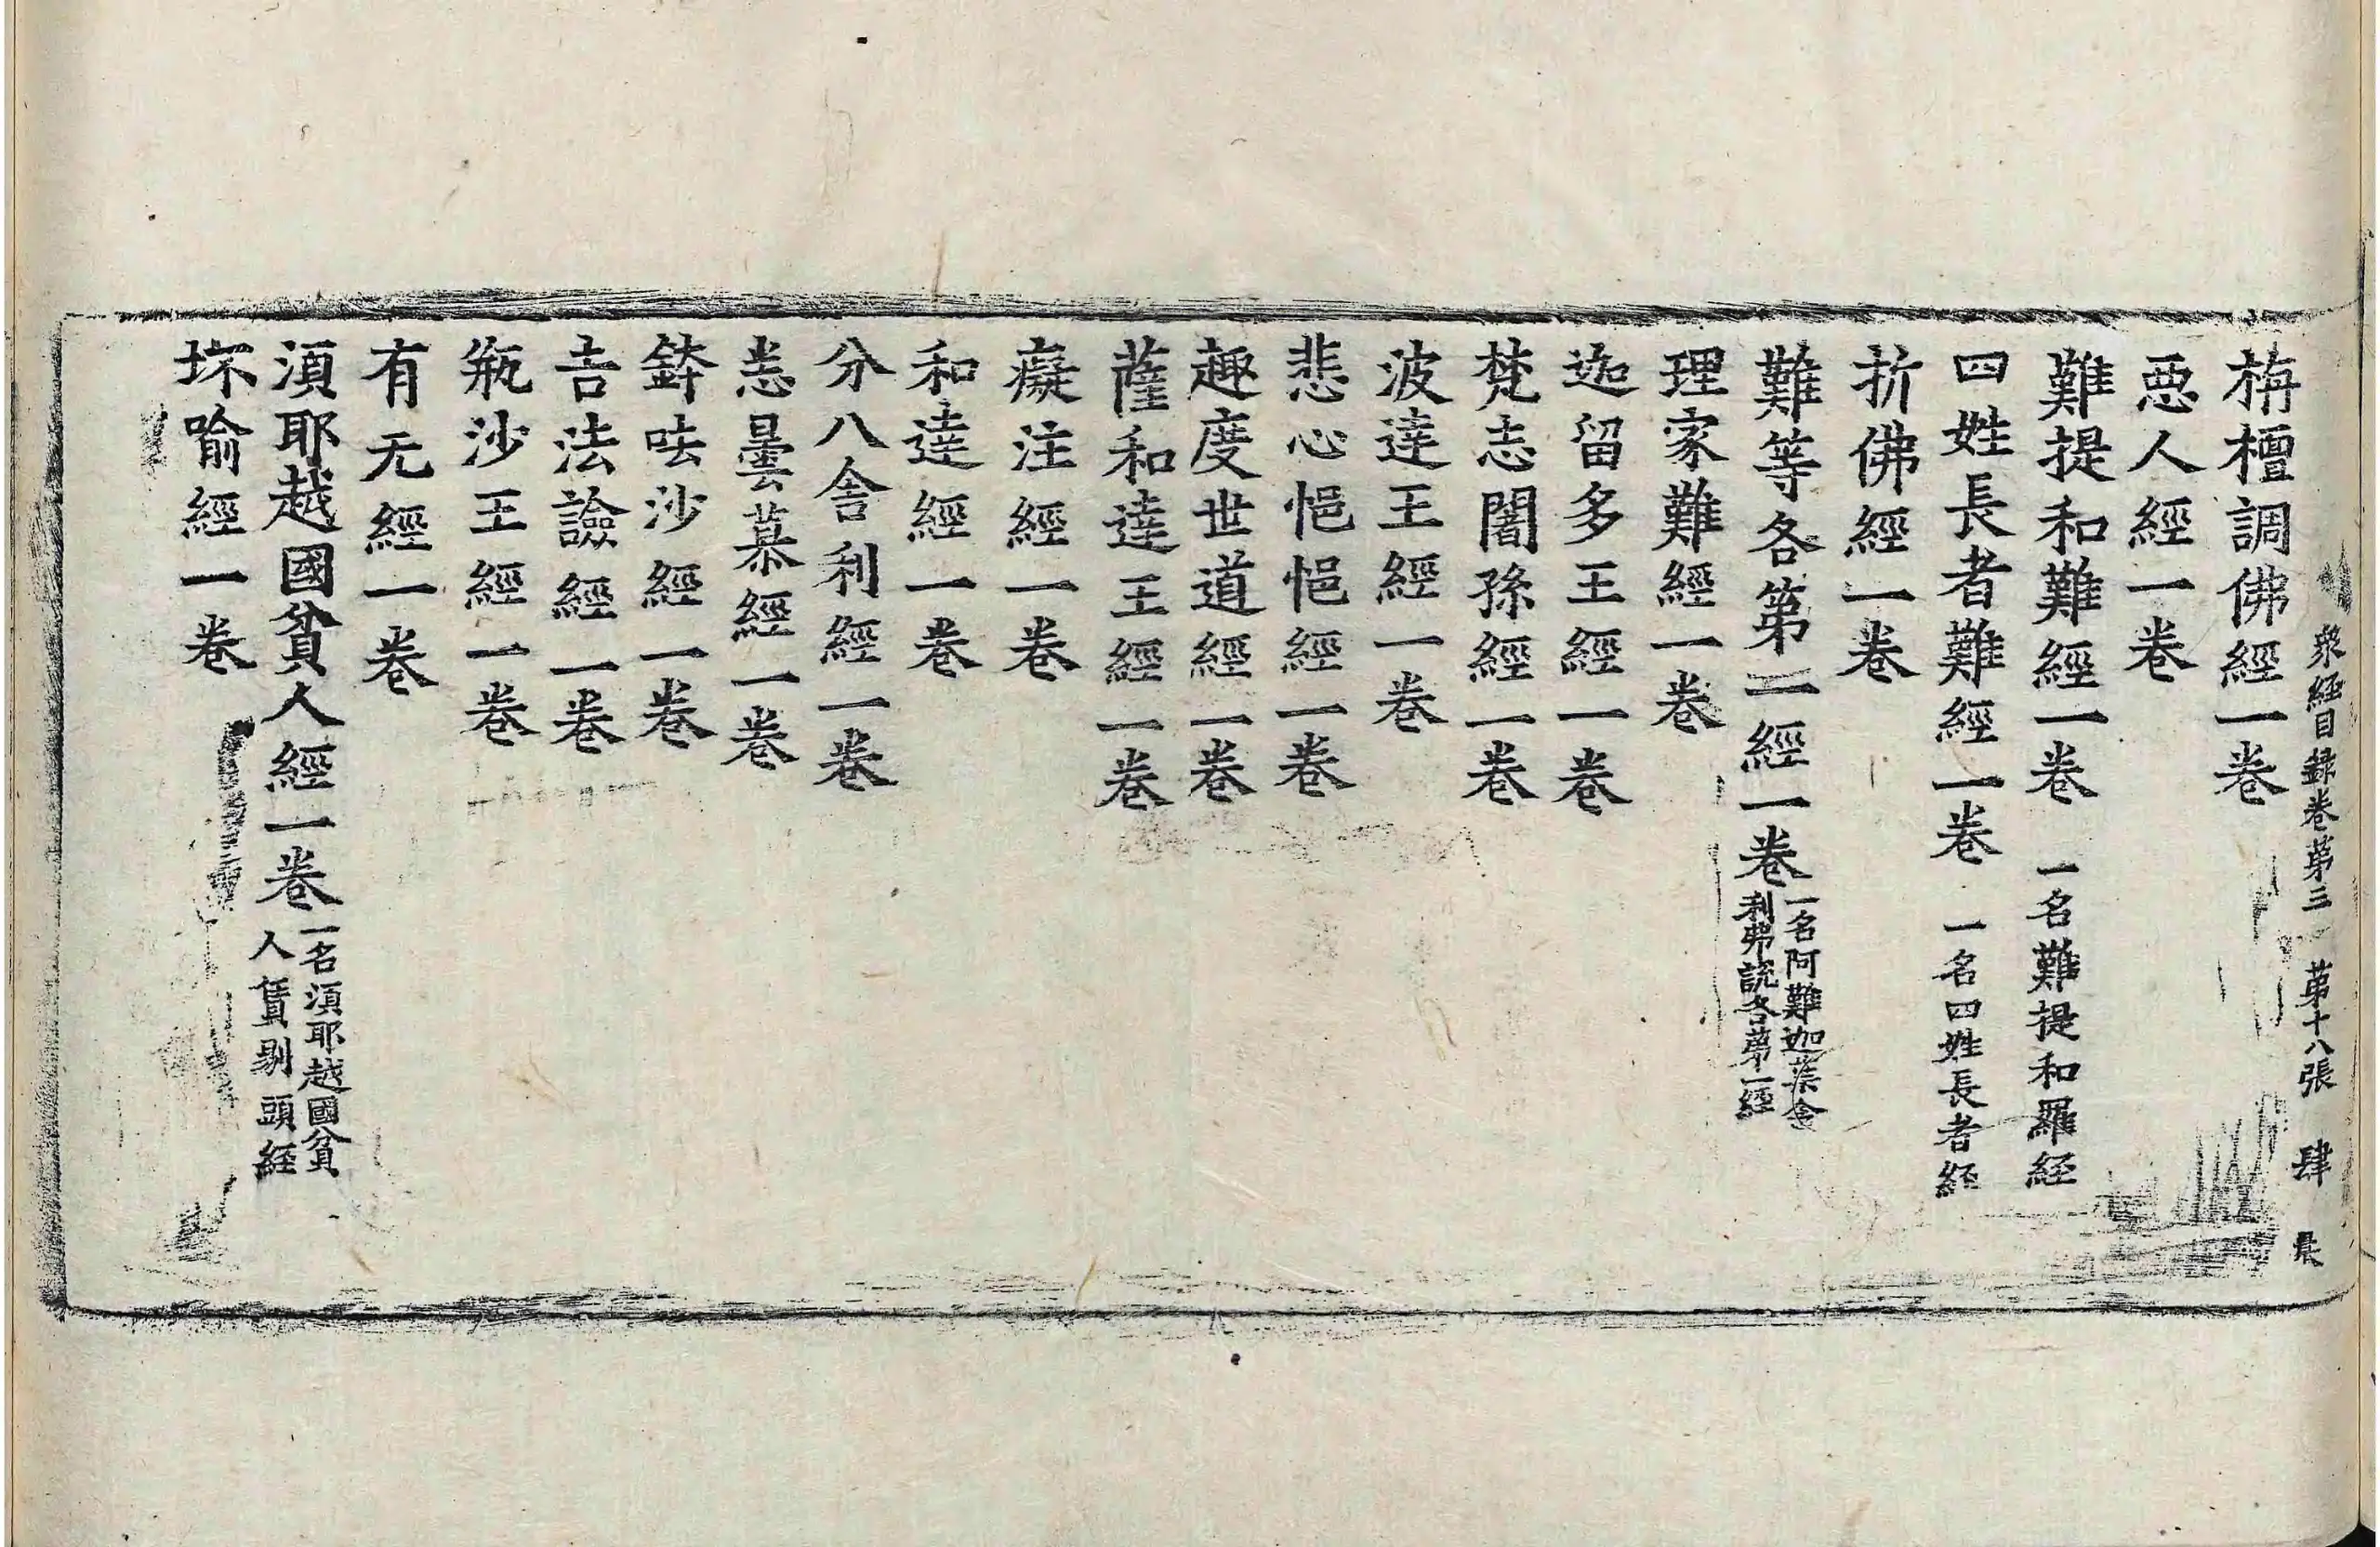 衆經目録卷第三　第十八張　肆　晨
栴檀調佛經一卷
惡人經一卷
難提和難經一卷　一名難提和羅経
四姓長者難經一卷　一名四姓長者経
折佛經一卷
難等各第一經一卷　一名阿難迦葉舍
利弗説各第一経
理家難經一卷
迦留多王經一卷
梵志闍孫經一卷
波達王經一卷
悲心悒悒經一卷
趣度世道經一卷
薩和達王經一卷
癡注經一卷
和達經一卷
分八舍利經一卷
恙曇慕經一卷
鉢呿沙經一卷
吉法譣經一卷
瓶沙王經一卷
有无經一卷
湏耶越國貧人經一卷　一名湏耶越國貧
人賃剔頭経
坏喻經一卷